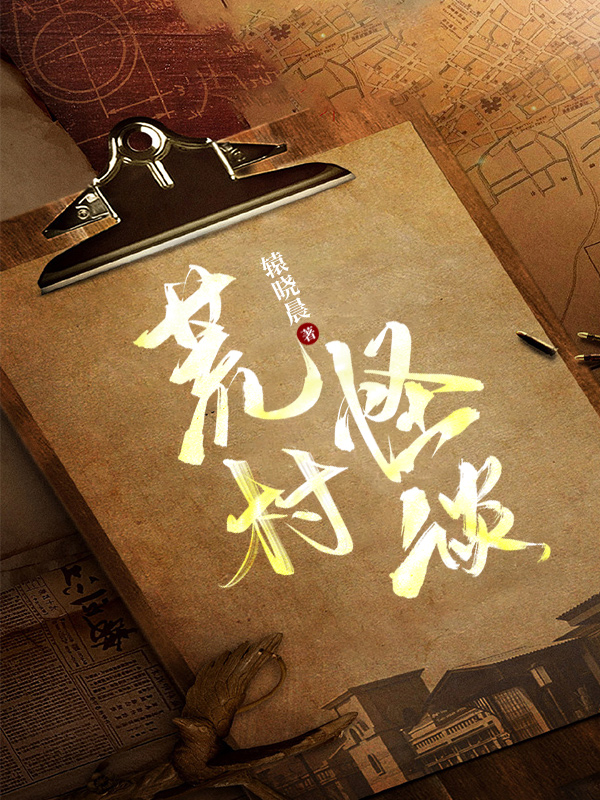 荒村
怪谈
辕晓晨
著